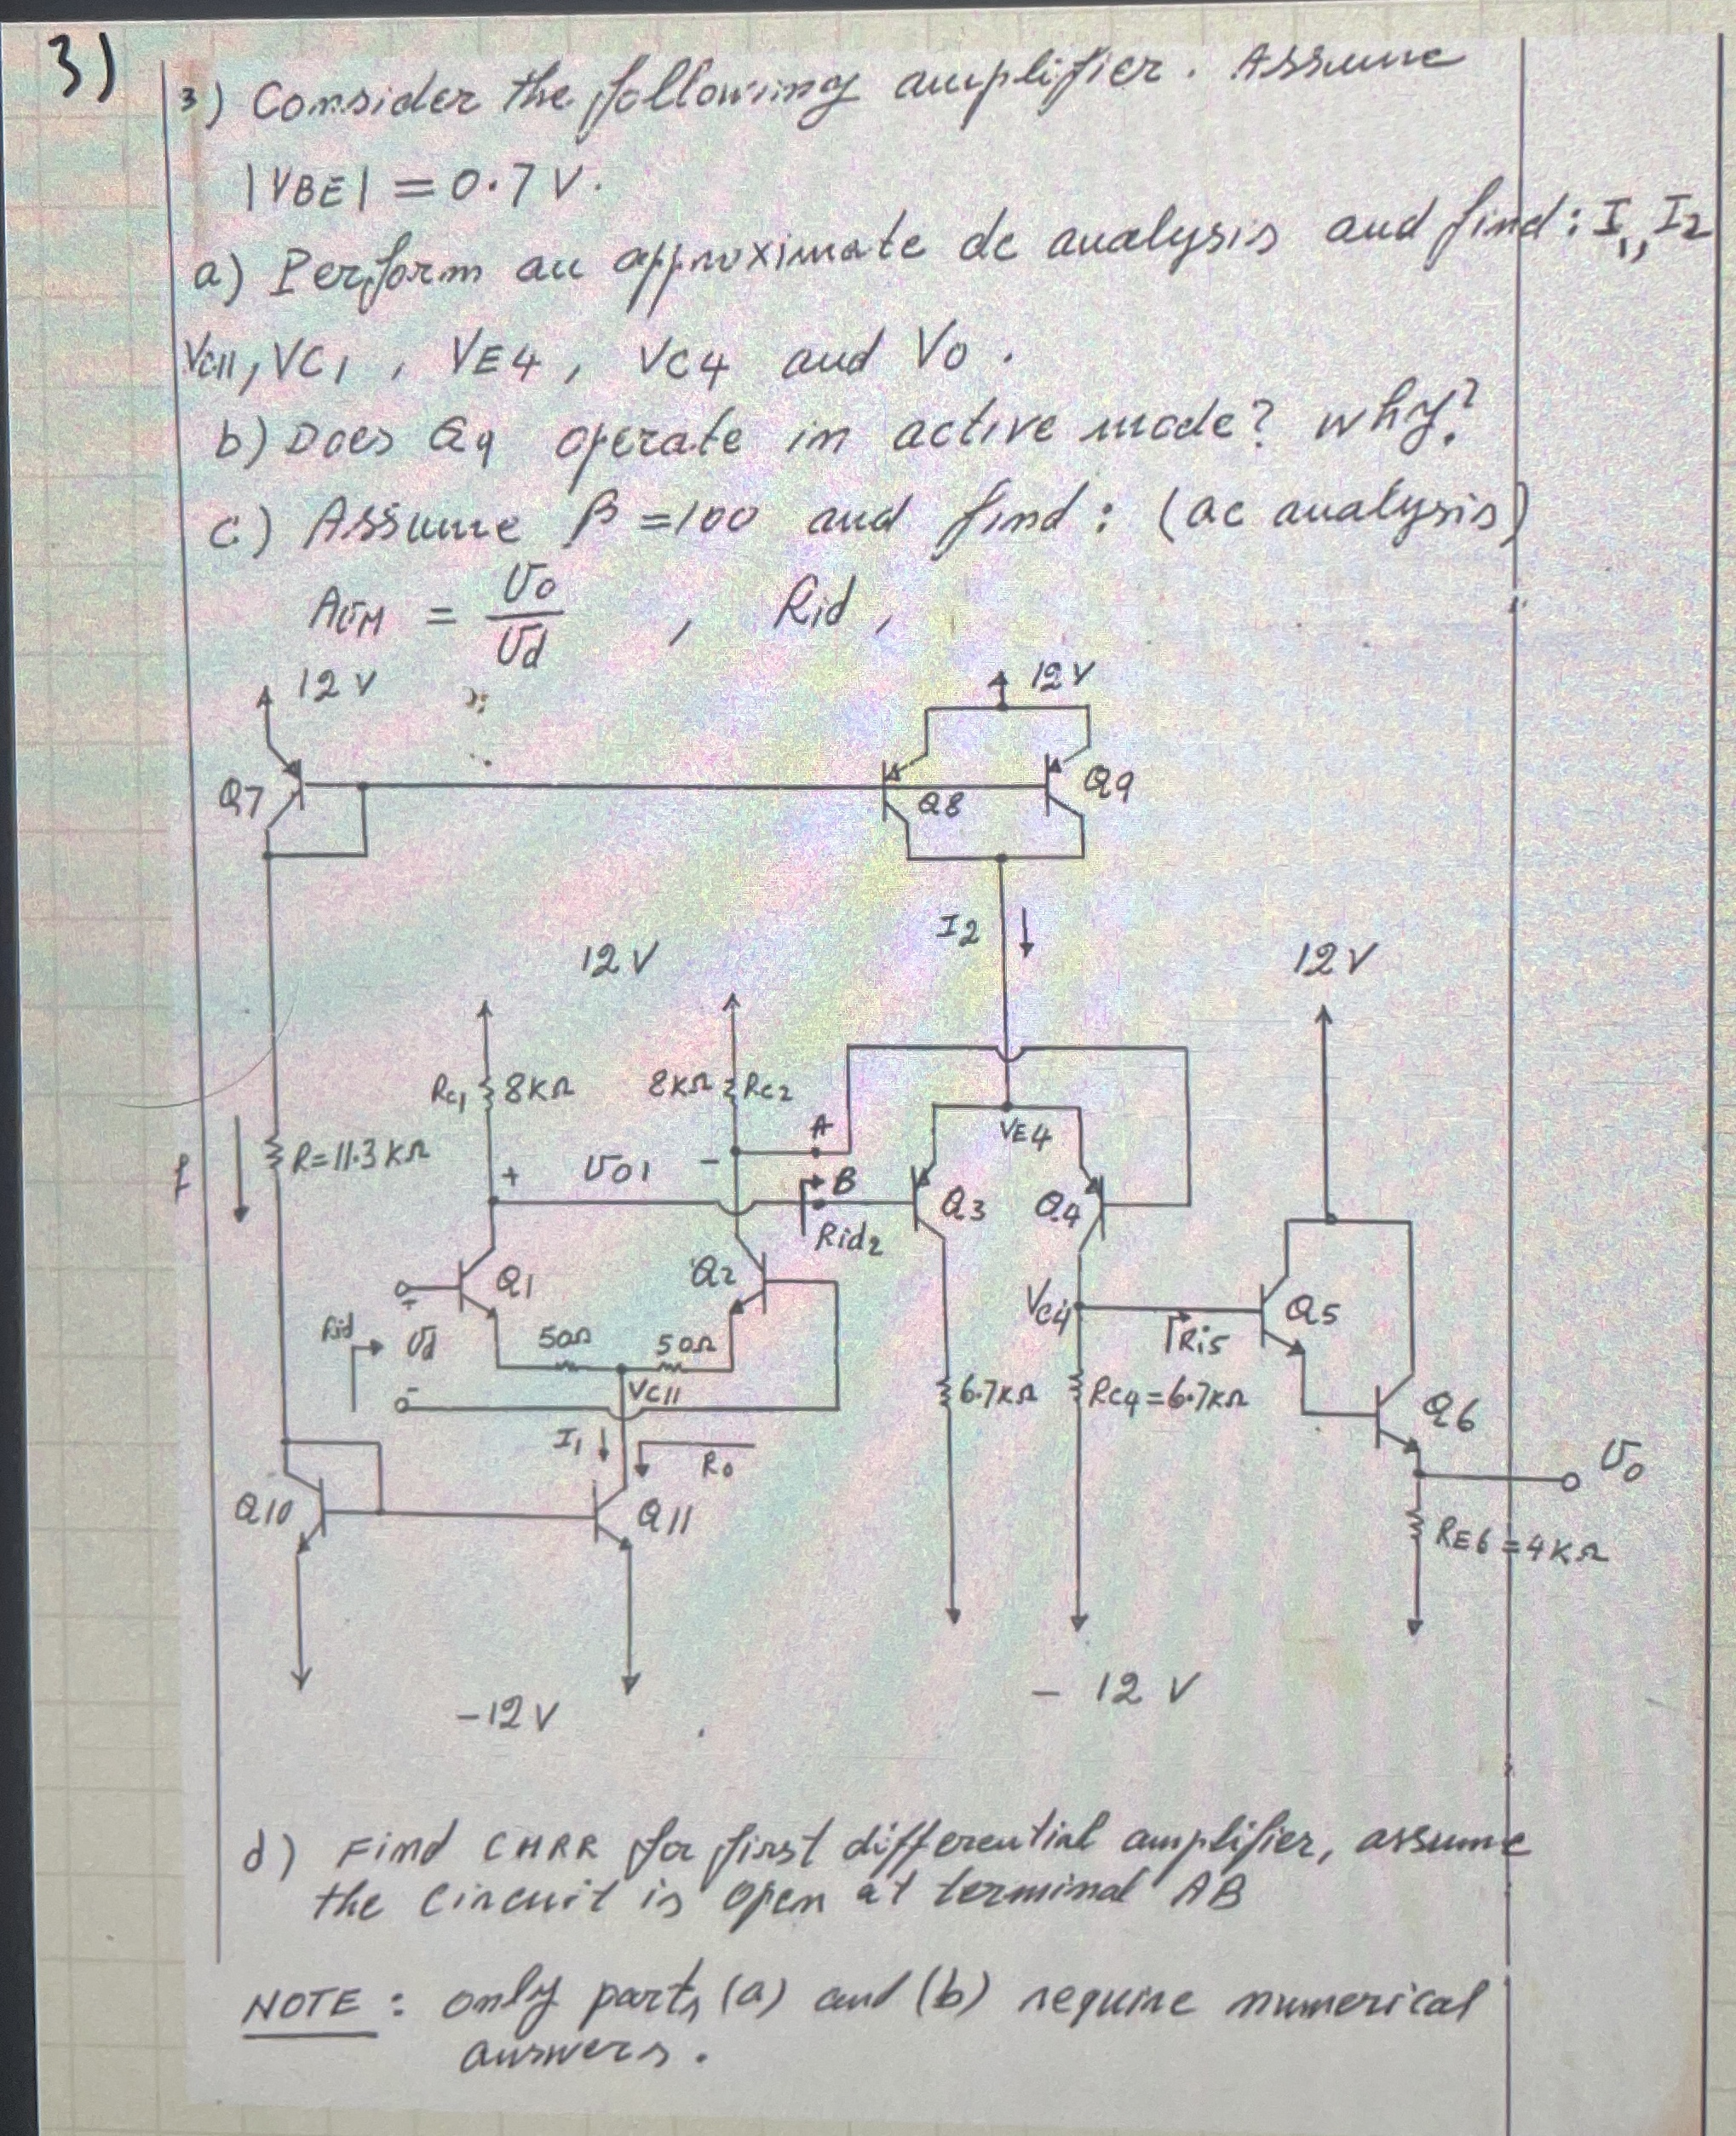 3)
3) Consider the following amplifier. Assume
|VBE| = 0.7 V.
a) Perform an approximate dc analysis and find: I1, I2
VC11, VC1, VE4, VC4 and VO.
b) Does Q4 operate in active mode? why?
c) Assume β = 100 and find: (ac analysis)
= Vo/Vd, Rid,
12 V
12 V
Q7
Q8
Q9
I2
12 V
12 V
Rc1 8KΩ
8KΩ Rc2
A
VE4
I
R=11.3 KΩ
+ VO1 -
B
Q3
Q4
Rid2
Q1
Q2
VC4
Q5
Ri5
Rid
+
Vd
-
50Ω
50Ω
VC11
6.7KΩ
RC4=6.7KΩ
Q6
I1
Ro
Vo
Q10
Q11
RE6=4KΩ
-12 V
- 12 V
d) Find CMRR for first differential amplifier, assume
the circuit is open at terminal AB
NOTE: only parts (a) and (b) require numerical
answers.